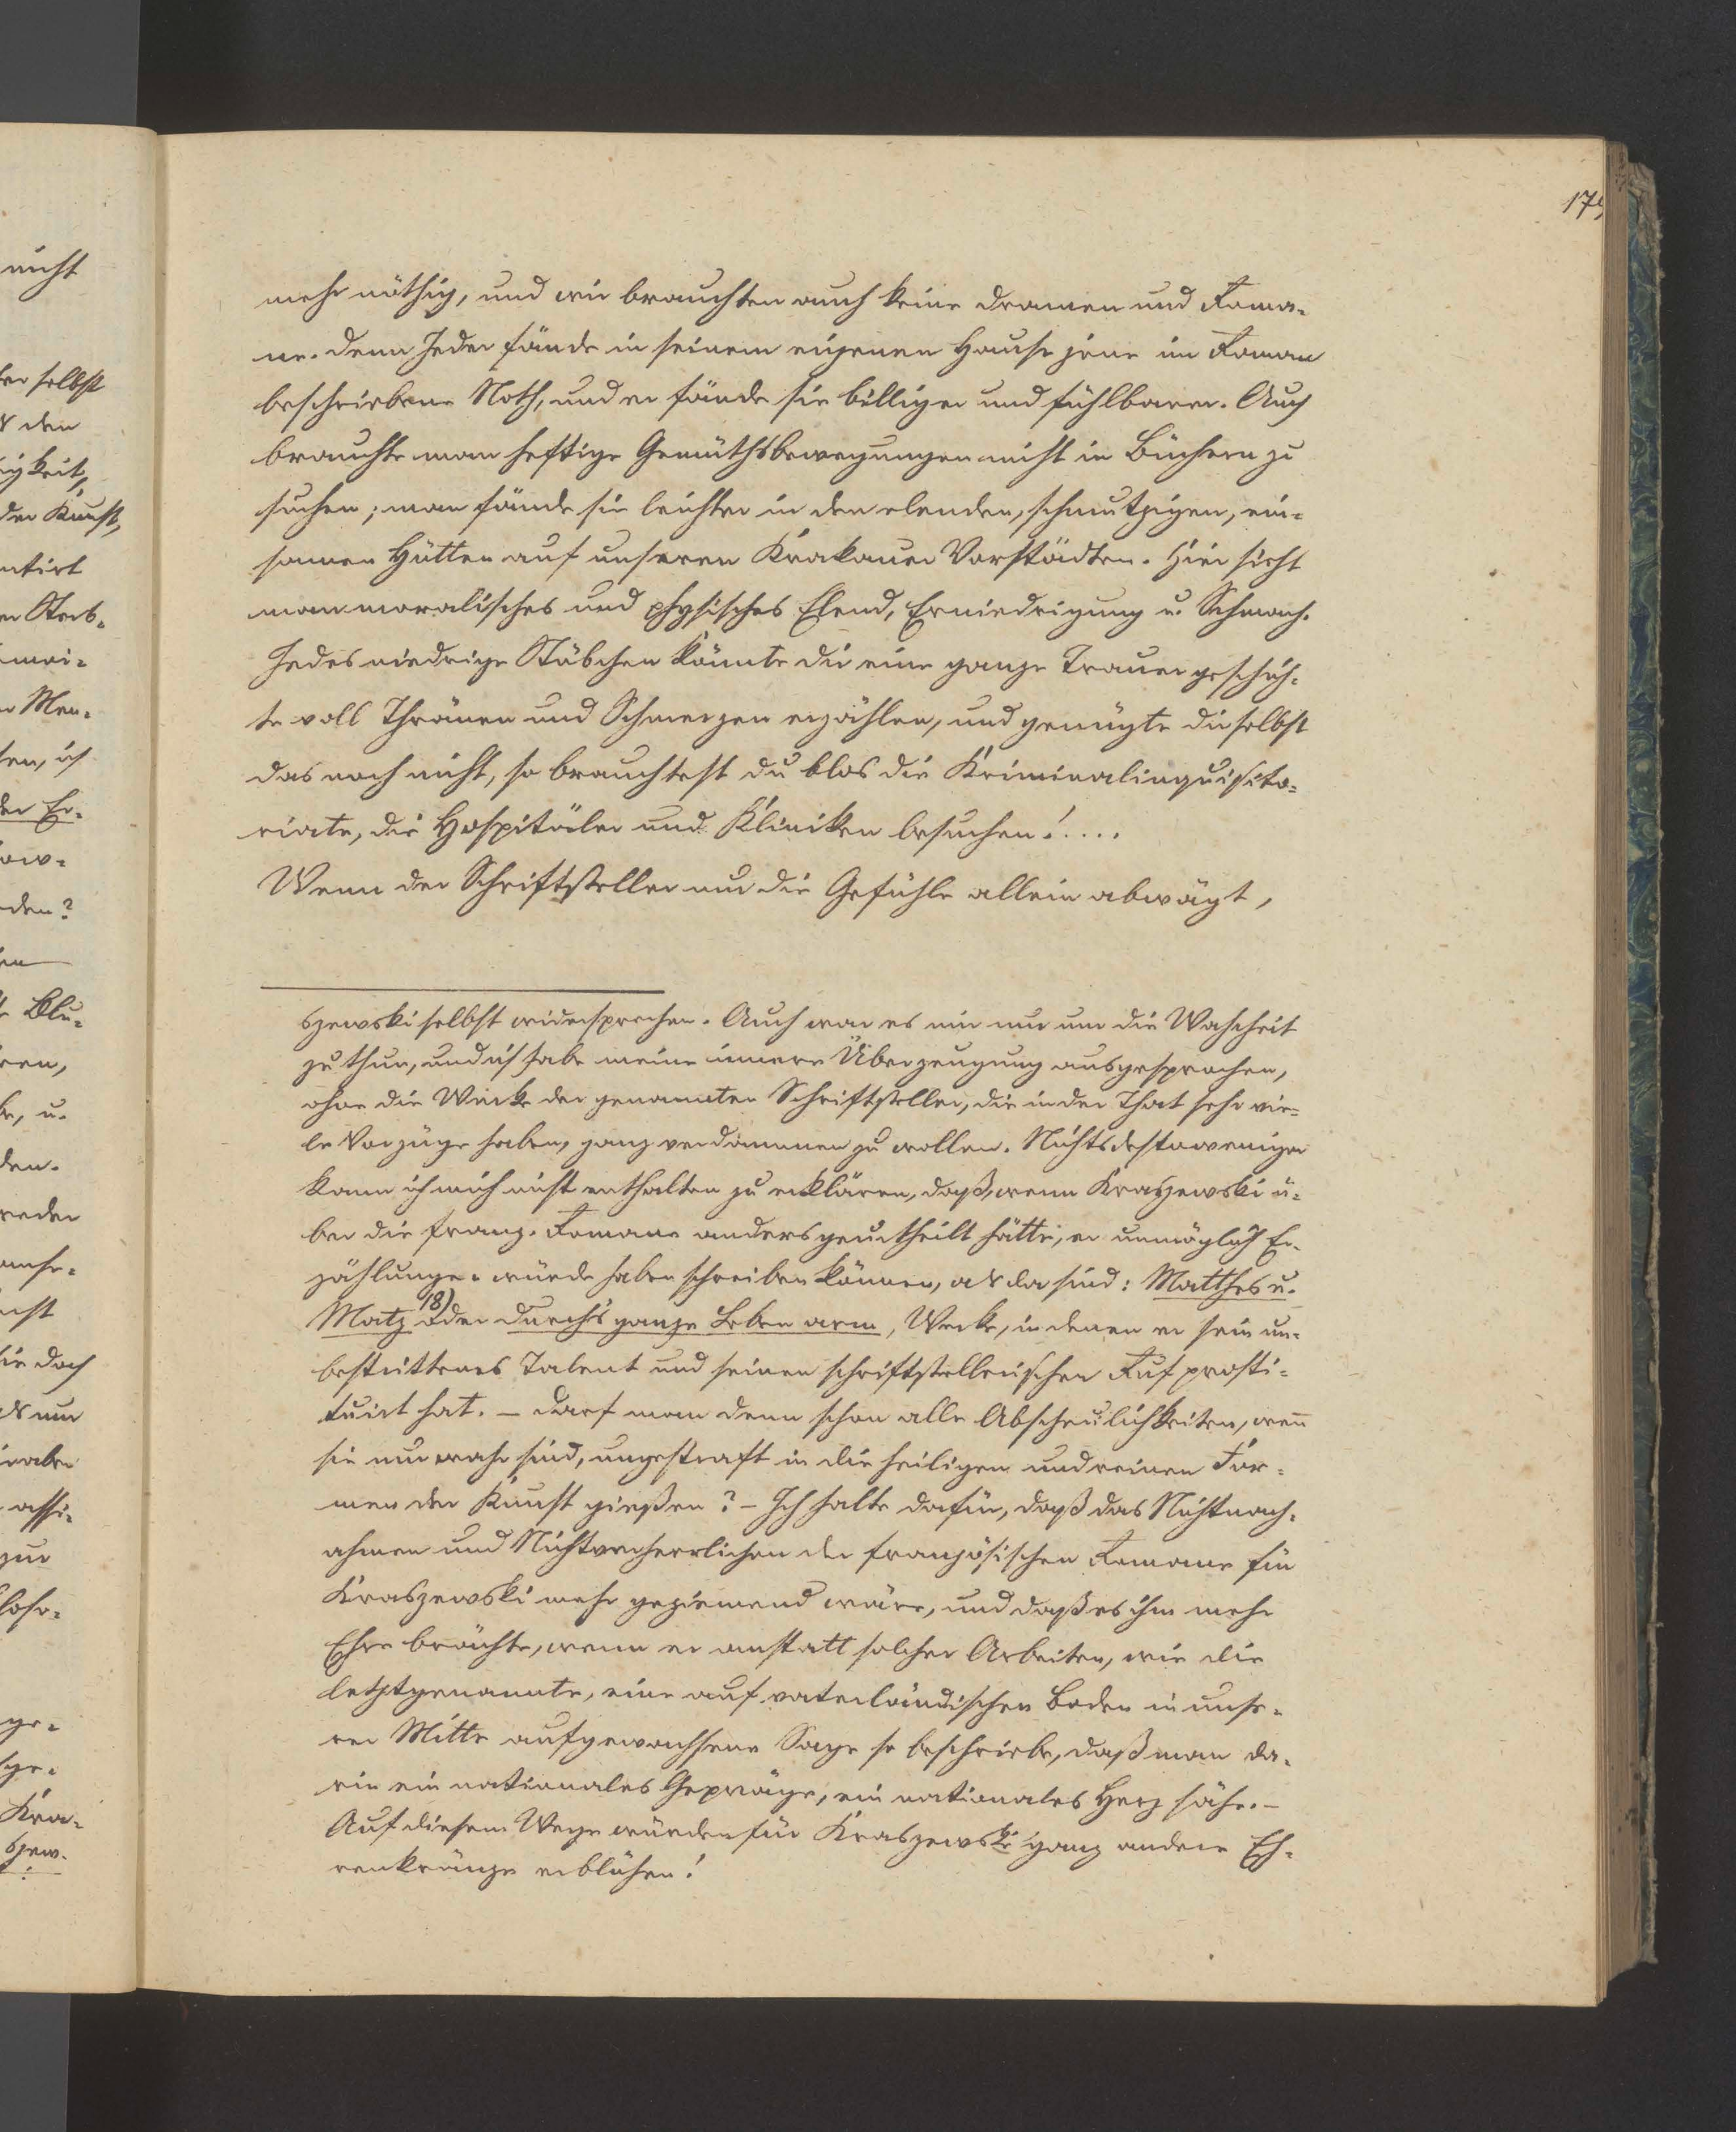 175
mehr nöthig, und wir brauchten auch keine Dramen und Roma-
ne. Denn Jeder fände in seinem eigenen Hause jene im Roman
beschriebene Noth, und er fände sie billiger und fühlbarer. Auch
brauchte man heftige Gemüthsbewegungen nicht in Büchern zu
suchen; man fände sie leichter in den elenden, schmutzigen, ein-
samen Hütten auf unseren Krakauer Vorstädten. Hier sieht
man moralisches und physisches Elend, Erniedrigung u. Schmach.
Jedes niedrige Stübchen könnte dir eine ganze Trauergeschich-
te voll Thränen und Schmerzen erzählen, und genügte dir selbst
das noch nicht, so brauchtest du blos die Kriminalinquisito-
riate, die Hospitäler und Kliniken besuchen!....
Wenn der Schriftsteller nur die Gefühle allein abwägt,
szewski selbst widersprechen. Auch war es mir nur um die Wahrheit
zu thun, und ich habe meine innere Überzeugung ausgesprochen,
ohne die Werke der genannten Schriftsteller, die in der That sehr vie-
le Vorzüge haben, ganz verdammen zu wollen. Nichtsdestoweniger
kann ich mich nicht enthalten zu erklären, daß, wenn Kraszewski ü-
ber die franz. Romane anders geurtheilt hätte, er unmöglich Er-
zählungen würde haben schreiben können, als da sind: Matthes u.
Matz 18) Oder durch's ganze Leben arm, Werke, in denen er sein un-
bestrittenes Talent und seinen schriftstellerischen Ruf prosti-
tuirt hat. – Darf man denn schon alle Abscheulichkeiten, wenn
sie nur wahr sind, ungestraft in die heiligen und reinen For-
men der Kunst gießen? – Ich halte dafür, daß das Nichtnach-
ahmen und Nichtverherrlichen der französischen Romane für
Kraszewski mehr geziemend wäre, und daß es ihm mehr
Ehre brächte, wenn er anstatt solcher Arbeiten, wie die
letztgenannte, eine auf vaterländischen Boden in unse-
rer Mitte aufgewachsene Sage so beschriebe, daß man da-
rin ein nationales Gepräge, ein nationales Herz sähe. –
Auf diesem Wege würden für Kraszewski ganz andere Eh-
renkränze erblühen!